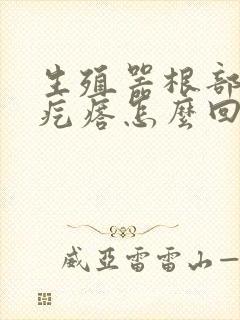 生殖器根部
疙瘩怎麼回
威亞雷雷山一